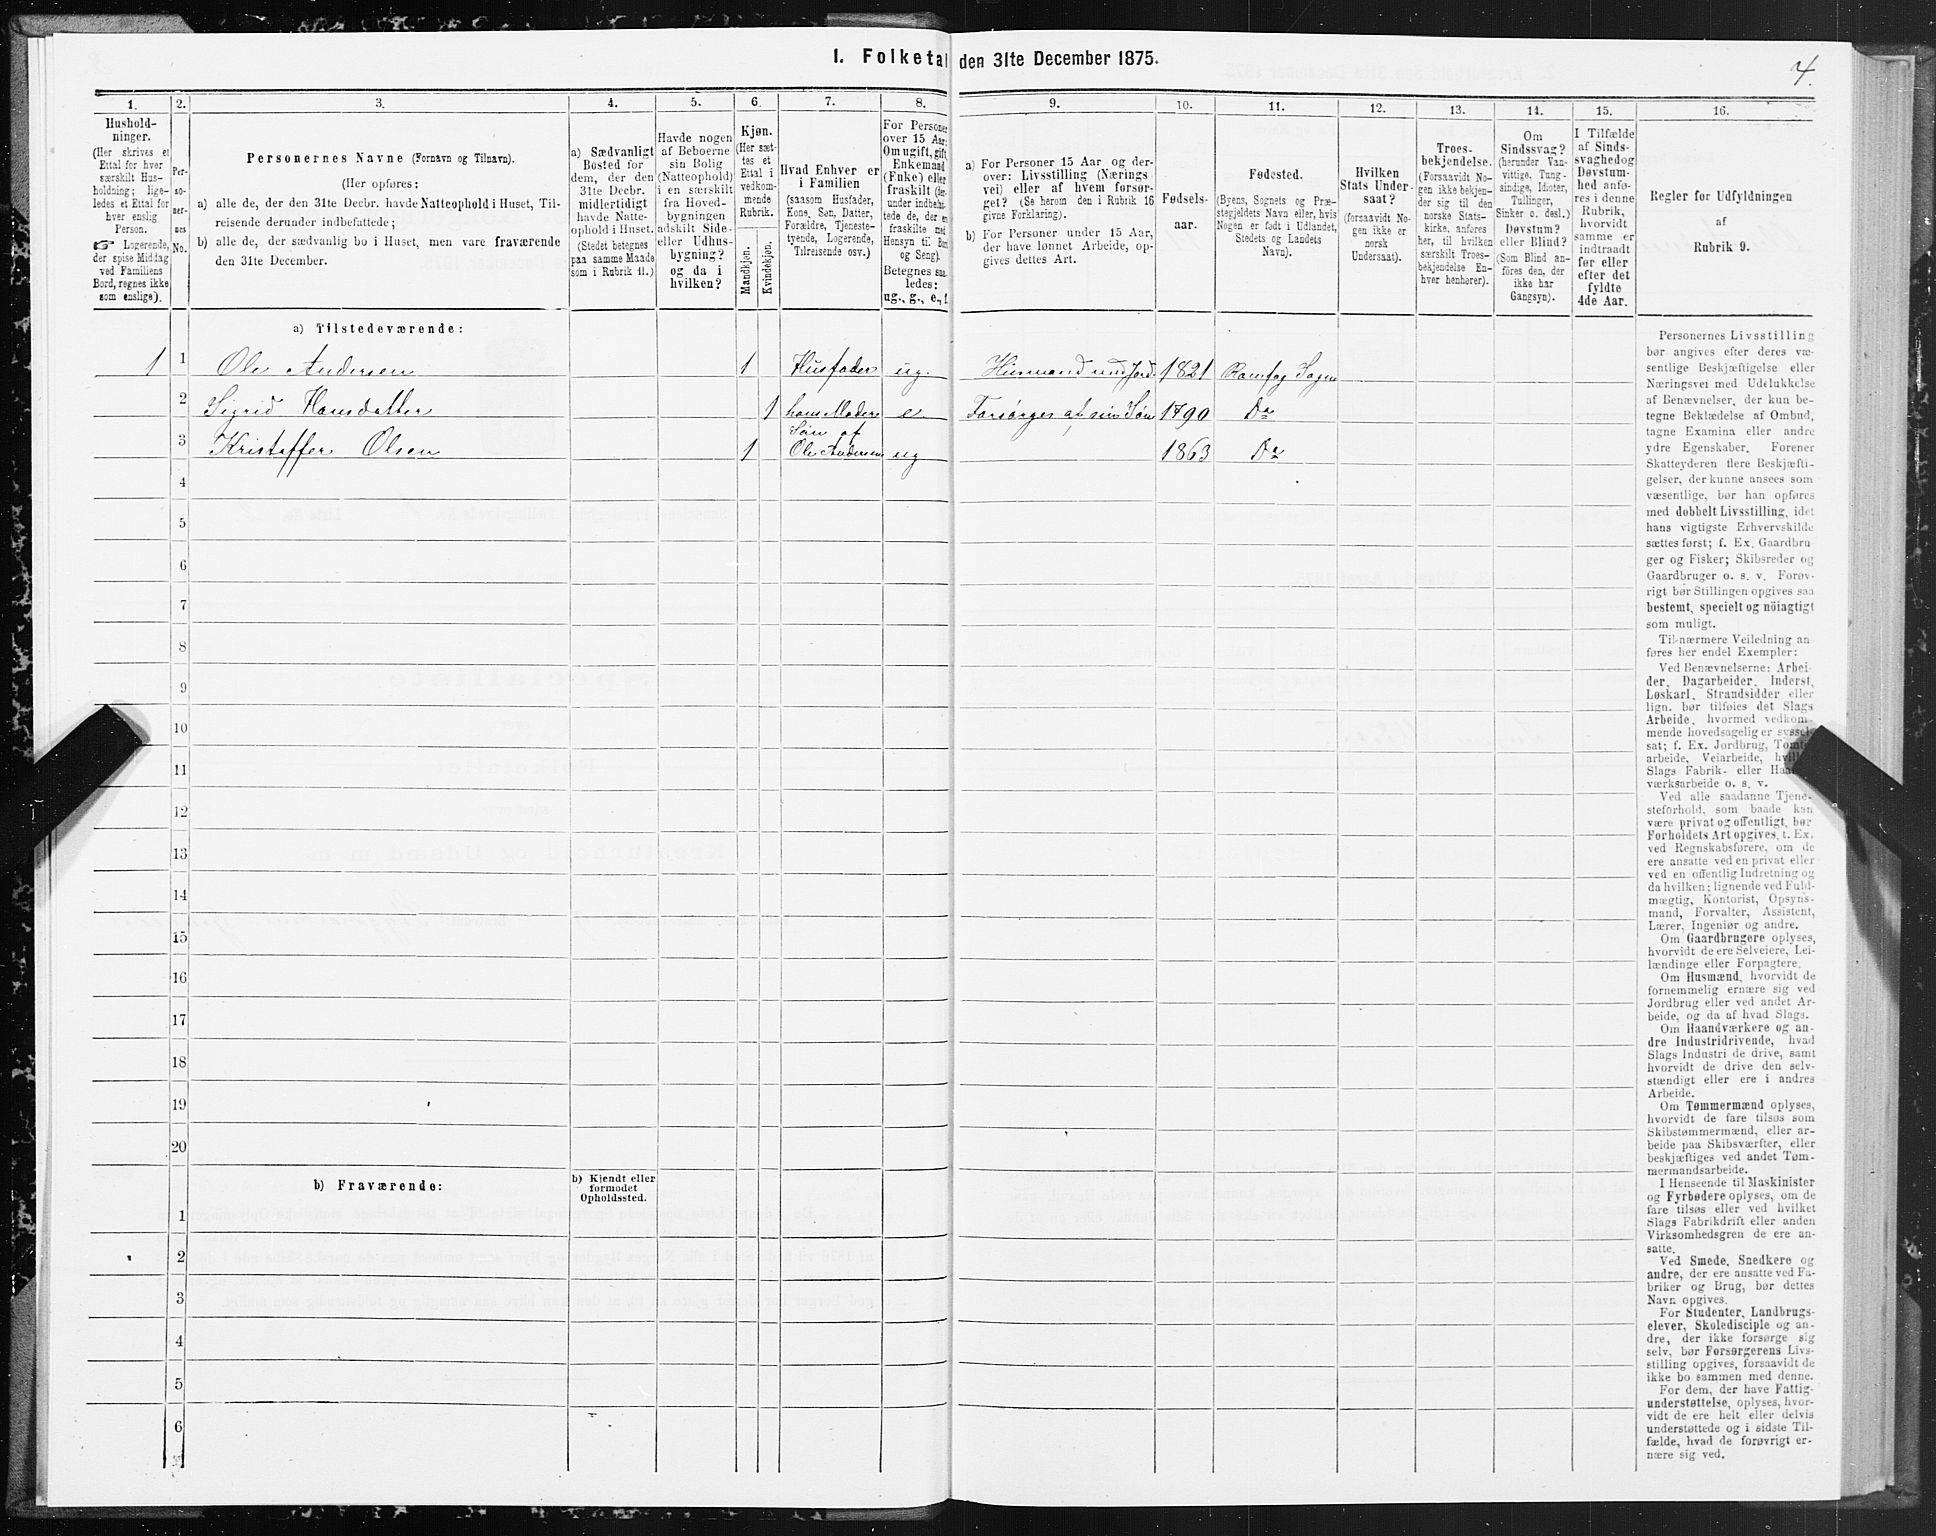 1. Folketal den 31te December 1875.
4.
1.
2.
3.
4.
5.
6.
7.
8.
9.
10.
11.
12.
13.
14.
15.
16.
Hushold-
ninger.
(Her skrives et
Ettal for hver
særskilt Hus-
holdning; lige-
ledes et Ettal for
hver enslig
Person.
☞ Logerende,
der spise Middag
ved Familiens
Bord, regnes ikke
som enslige).
Per-
so-
ner-
nes
No.
Personernes Navne (Fornavn og Tilnavn).
(Her opføres:
a) alle de, der den 31te Decbr. havde Natteophold i Huset, Til-
reisende derunder indbefattede;
b) alle de, der sædvanlig bo i Huset, men vare fraværende
den 31te December.
a) Sædvanligt
Bosted for
dem, der den
31te Decbr.
midlertidigt
havde Natte-
ophold i Huset.
(Stedet betegnes
paa samme Maade
som i Rubrik 11.)
Havde nogen
af Beboerne
sin Bolig
(Natteophold)
i en særskilt
fra Hoved-
bygningen
adskilt Side-
eller Udhus-
bygning?
og da i
hvilken?
Kjøn.
(Her sæt-
tes et
Ettal i
vedkom-
mende
Rubrik.
Mandkjøn.
Kvindekjøn.
Hvad Enhver er
i Familien
(saasom Husfader,
Kone, Søn, Datter,
Forældre, Tjeneste-
tyende, Logerende,
Tilreisende osv.)
For Personer
over 15 Aar:
Om ugift, gift,
Enkemand
(Enke) eller
fraskilt (der-
under indbefat-
tede de, der ere
fraskilte med
Hensyn til Bord
og Seng).
Betegnes saa-
ledes:
ug., g., e., f.
a) For Personer 15 Aar og der-
over: Livsstilling (Nærings
vei) eller af hvem forsør-
get? (Se herom den i Rubrik 16
givne Forklaring).
b) For Personer under 15 Aar,
der have lønnet Arbeide, op-
gives dettes Art.
Fødsels-
aar.
Fødested.
(Byens, Sognets og Præ-
stegjeldets Navn eller, hvis
Nogen er født i Udlandet,
Stedets og Landets
Navn).
Hvilken
Stats Under-
saat?
(forsaavidt No-
gen ikke er
norsk
Undersaat).
Troes-
bekjendelse.
(Forsaavidt No-
gen ikke bekjen-
der sig til den
norske Stats-
kirke, anføres
her, til hvilken
særskilt Troes-
bekjendelse En-
hver henhører).
Om
Sindssvag?
(herunder Van-
vittige, Tung-
sindige, Idioter,
Tullinger,
Sinker o. desl.)
Døvstum?
eller Blind?
(Som Blind an-
føres den, der
ikke har
Gangsyn).
I Tilfælde
af Sinds-
svaghed og
Døvstum-
hed anfø-
res i denne
Rubrik,
hvorvidt
samme er
indtraadt
før eller
efter det
fyldte
4de Aar.
Regler for Udfyldningen
af
Rubrik 9.
a) Tilstedeværende:
1 1 Ole Andersen 1 Husfader ug. Husmand med Jord 1821
2 Sigrid Hansdatter 1 hans Moder e. Forsørges af sin Søn 1790 Do
Søn af
3 Kristoffer Olsen 1 Ole Andersen ug 1863 Do
4
5
6
7
8
9
10
11
12
13
14
15
16
17
18
19
20
b) Fraværende:
b) Kjendt eller
formodet
Opholdssted.
1
2
3
4
5
6
Personernes Livsstilling
bør angives efter deres væ-
sentlige Beskjæftigelse eller
Næringsvei med Udelukkelse
af Benævnelser, der kun be-
tegne Beklædelse af Ombud,
tagne Examina eller andre
ydre Egenskaber. Forener
Skatteyderen flere Beskjæfti-
gelser, der kunne ansees som
væsentlige, bør han opføres
med dobbelt Livsstilling, idet
hans vigtigste Erhvervskilde
sættes først; f. Ex. Gaardbru-
ger og Fisker; Skibsreder og
Gaardbruger o. s. v. Forøv-
rigt bør Stillingen opgives saa
bestemt, specielt og nöiagtigt
som muligt.
Til nærmere Veiledning an
føres her endel Exempler:
Ved Benævnelserne: Arbei-
der, Dagarbeider, Inderst,
Løskarl, Strandsidder eller
lign. bør tilføies det Slags
Arbeide, hvormed vedkom-
mende hovedsagelig er syssel-
sat; f. Ex. Jordbrug, Tomte-
arbeide, Veiarbeide, hvilket
Slags Fabrik- eller Haand-
værksarbeide o. s. v.
Ved alle saadanne Tjene-
steforhold, som baade kan
være privat og offentligt, bør
Forholdets Art opgives, t. Ex.
ved Regnskabsførere, om de
ere ansatte ved en privat eller
ved en offentlig Indretning og
da hvilken; lignende ved Fuld-
mægtig, Kontorist, Opsyns-
mand, Forvalter, Assistent,
Lærer, Ingeniør og andre.
Om Gaardbrugere oplyses,
hvorvidt de ere Selveiere, Lei-
lændinge eller Forpagtere.
Om Husmænd, hvorvidt de
fornemmelig ernære sig ved
Jordbrug eller ved andet Ar-
beide, og da af hvad Slags.
Om Haandværkere og an-
dre Industridrivende, hvad
Slags Industri de drive, samt
hvorvidt de drive den selv-
stændigt eller ere i andres
Arbeide.
Om Tømmermænd oplyses,
hvorvidt de fare tilsøs som
Skibstømmermænd, eller ar-
beide paa Skibsværfter, eller
beskjæftiges ved andet Tøm-
mermandsarbeide.
I Henseende til Maskinister
og Fyrbødere oplyses, om de
fare tilsøs eller ved hvilket
Slags Fabrikdrift eller anden
Virksomhedsgren de ere an-
satte.
Ved Smede, Snedkere og
andre, der ere ansatte ved Fa-
briker og Brug, bør dettes
Navn opgives.
For Studenter, Landbrugs-
elever, Skoledisciple og an-
dre, der ikke forsørge sig
selv, bør Forsørgerens Livs-
stilling opgives, forsaavidt de
ikke bo sammen med denne.
For dem, der have Fattig-
understøttelse, oplyses, hvor-
vidt de ere helt eller delvis
understøttede og i sidste Til-
fælde, hvad de forøvrigt er-
nære sig ved.